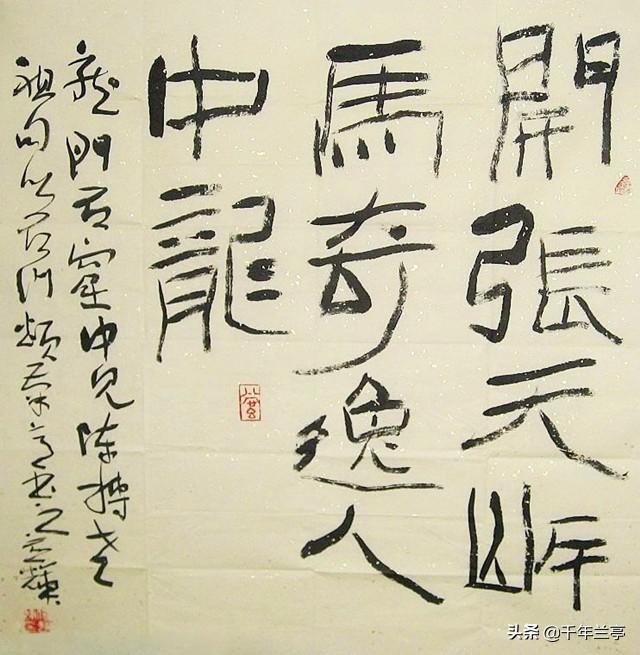 開張天岸
馬奇逸人
中龍
龍門石窟中見陳摶老
祖句以石門頌筆意書之
头条 @千年兰亭